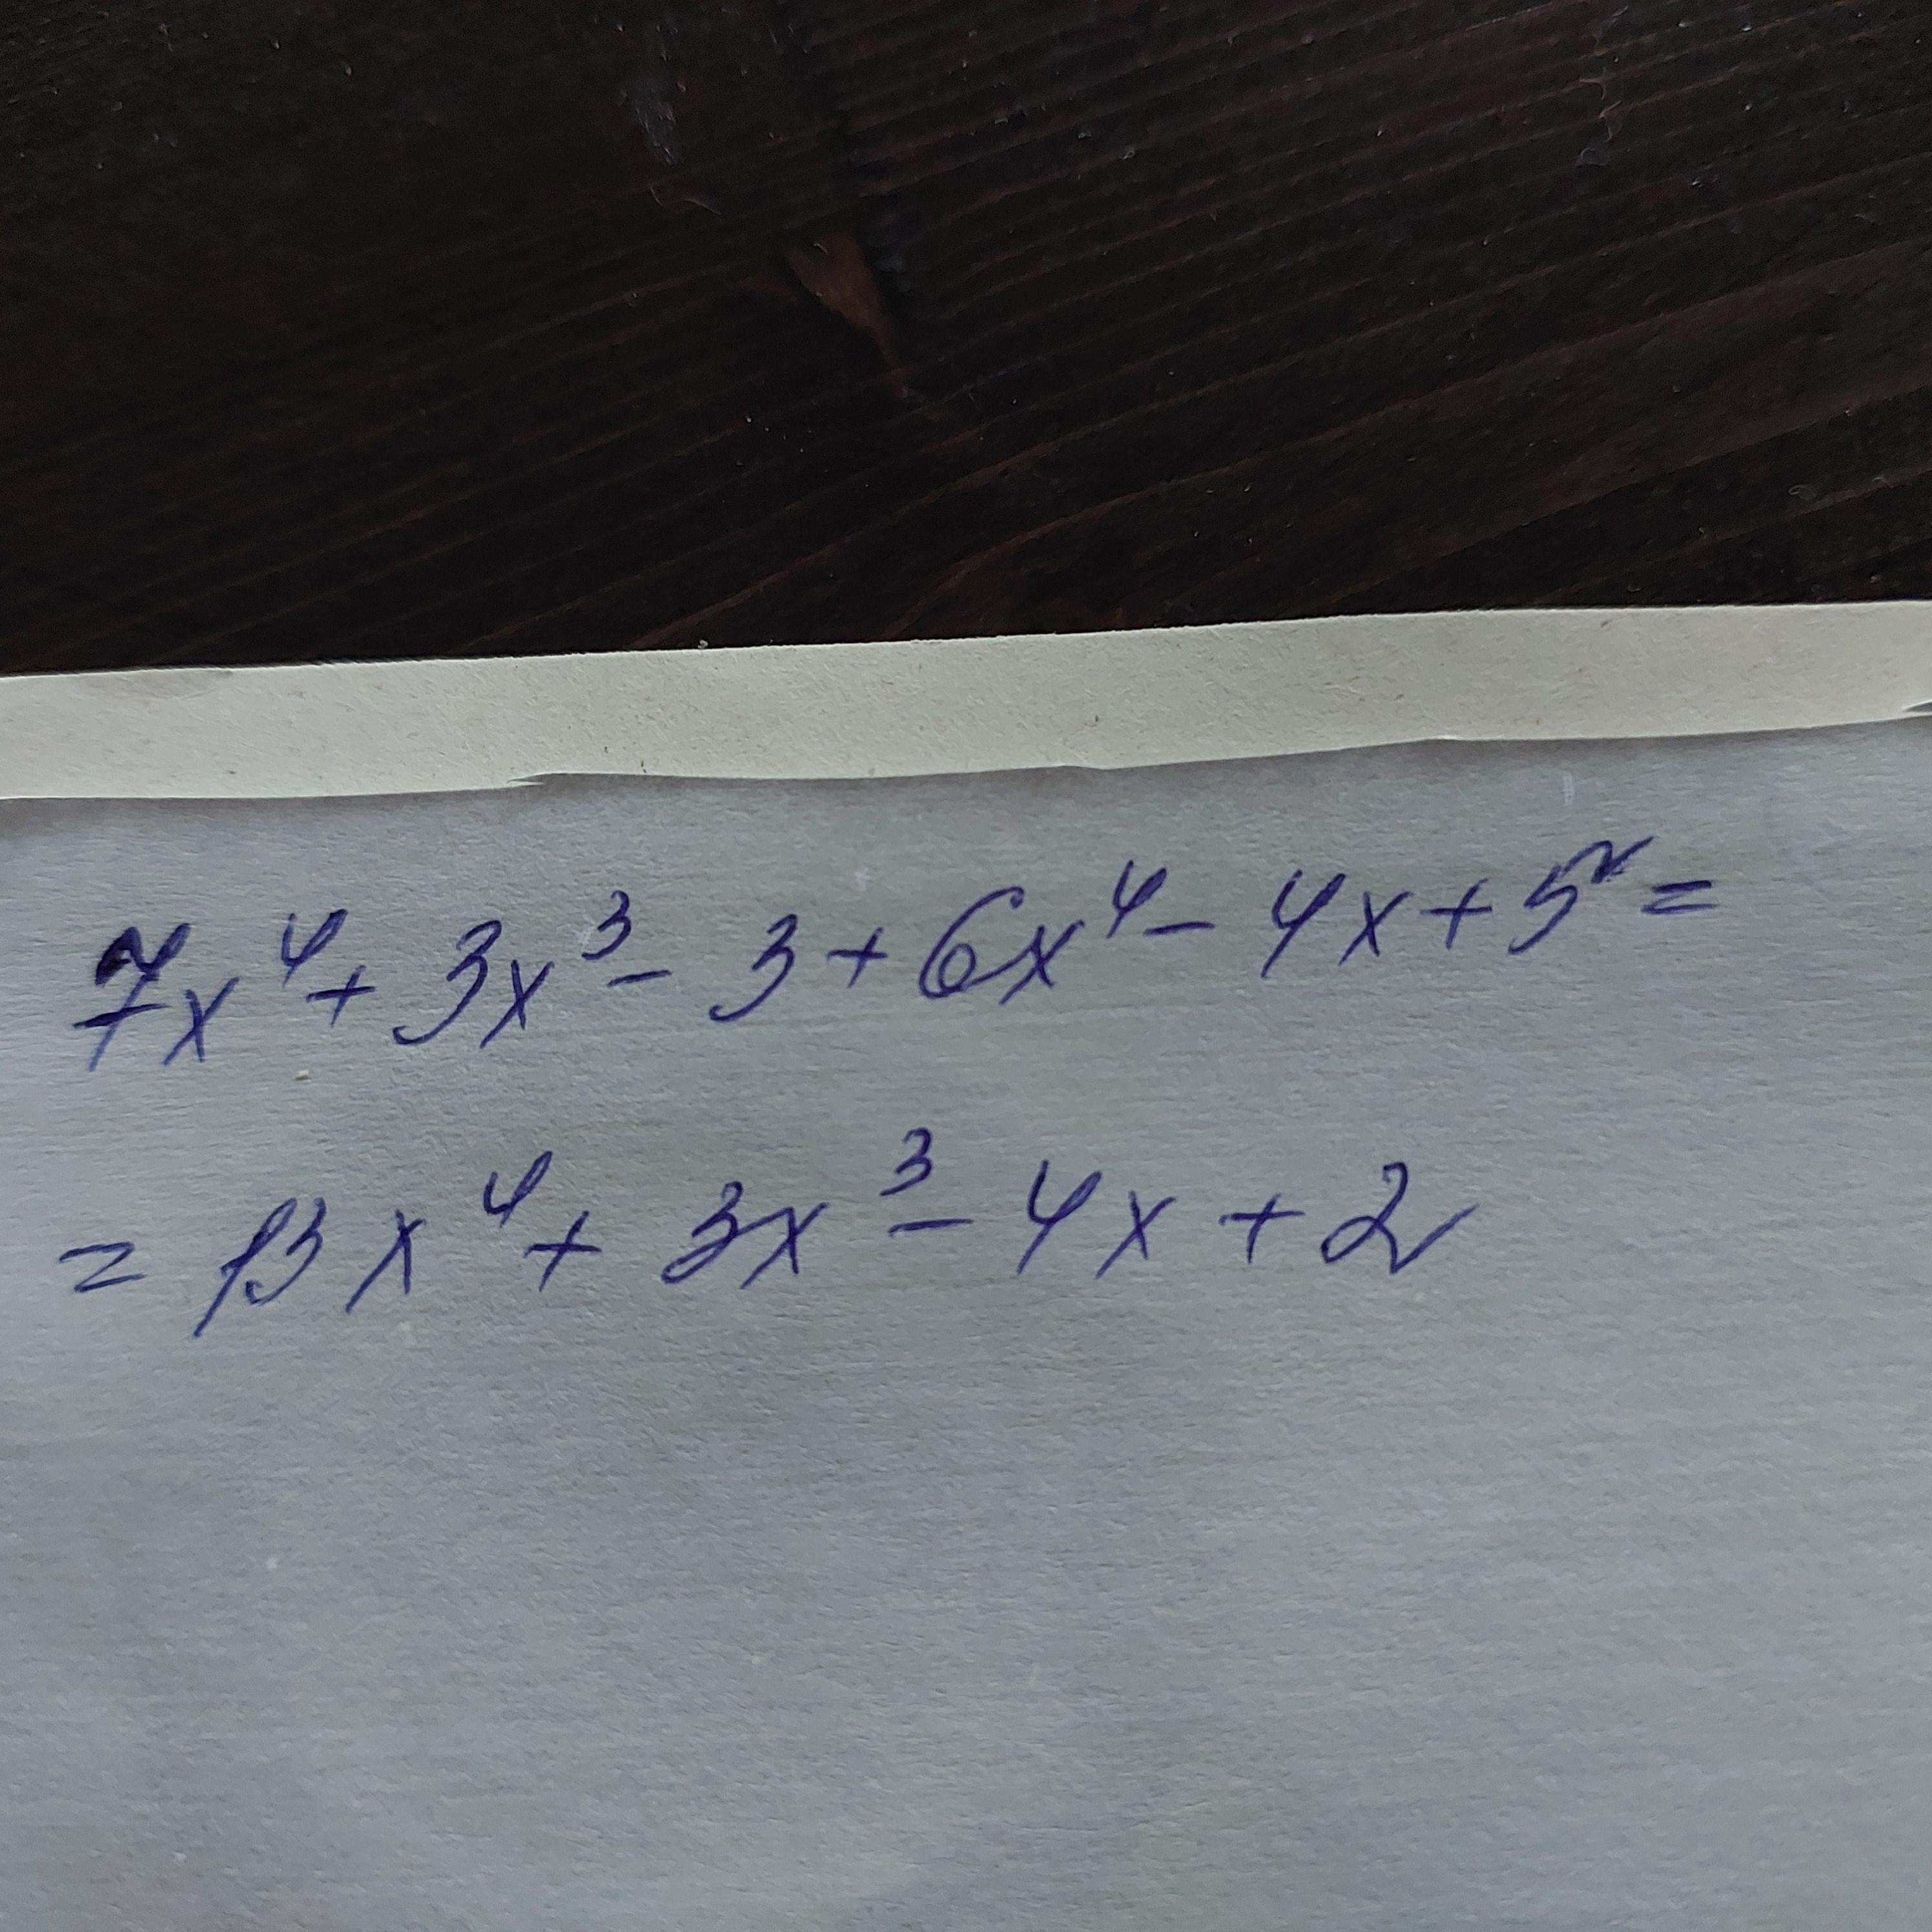 7x⁴ + 3x³ - 3 + 6x⁴ - 4x + 5 =
= 13x⁴ + 3x³ - 4x + 2